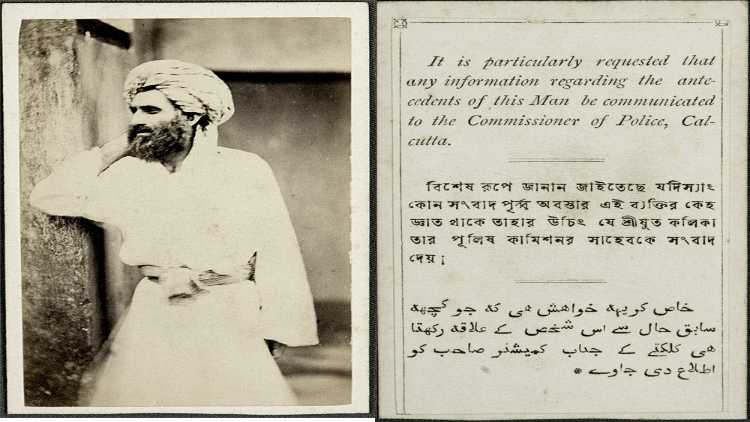 It is particularly requested that
any information regarding the ante-
cedents of this Man be communicated
to the Commissioner of Police, Cal-
cutta.
বিশেষ রূপে জানান জাইতেছে যদিস্যাং
কোন সংবাদ পূর্ব্ব অবস্তার এই ব্যক্তির কেহ
জ্ঞাত থাকে তাহার উচিং যে শ্রীযুত কলিকা
তার পুলিষ কামিশনর সাহেবকে সংবাদ
দেয়।
خاص کر یہہ خواهش هی که جو کچهه
سابق حال سے اس شخص کے علاقه رکهتا
هی کلکتے کے جناب کمیشنر صاحب کو
اطلاع دی جاوے *